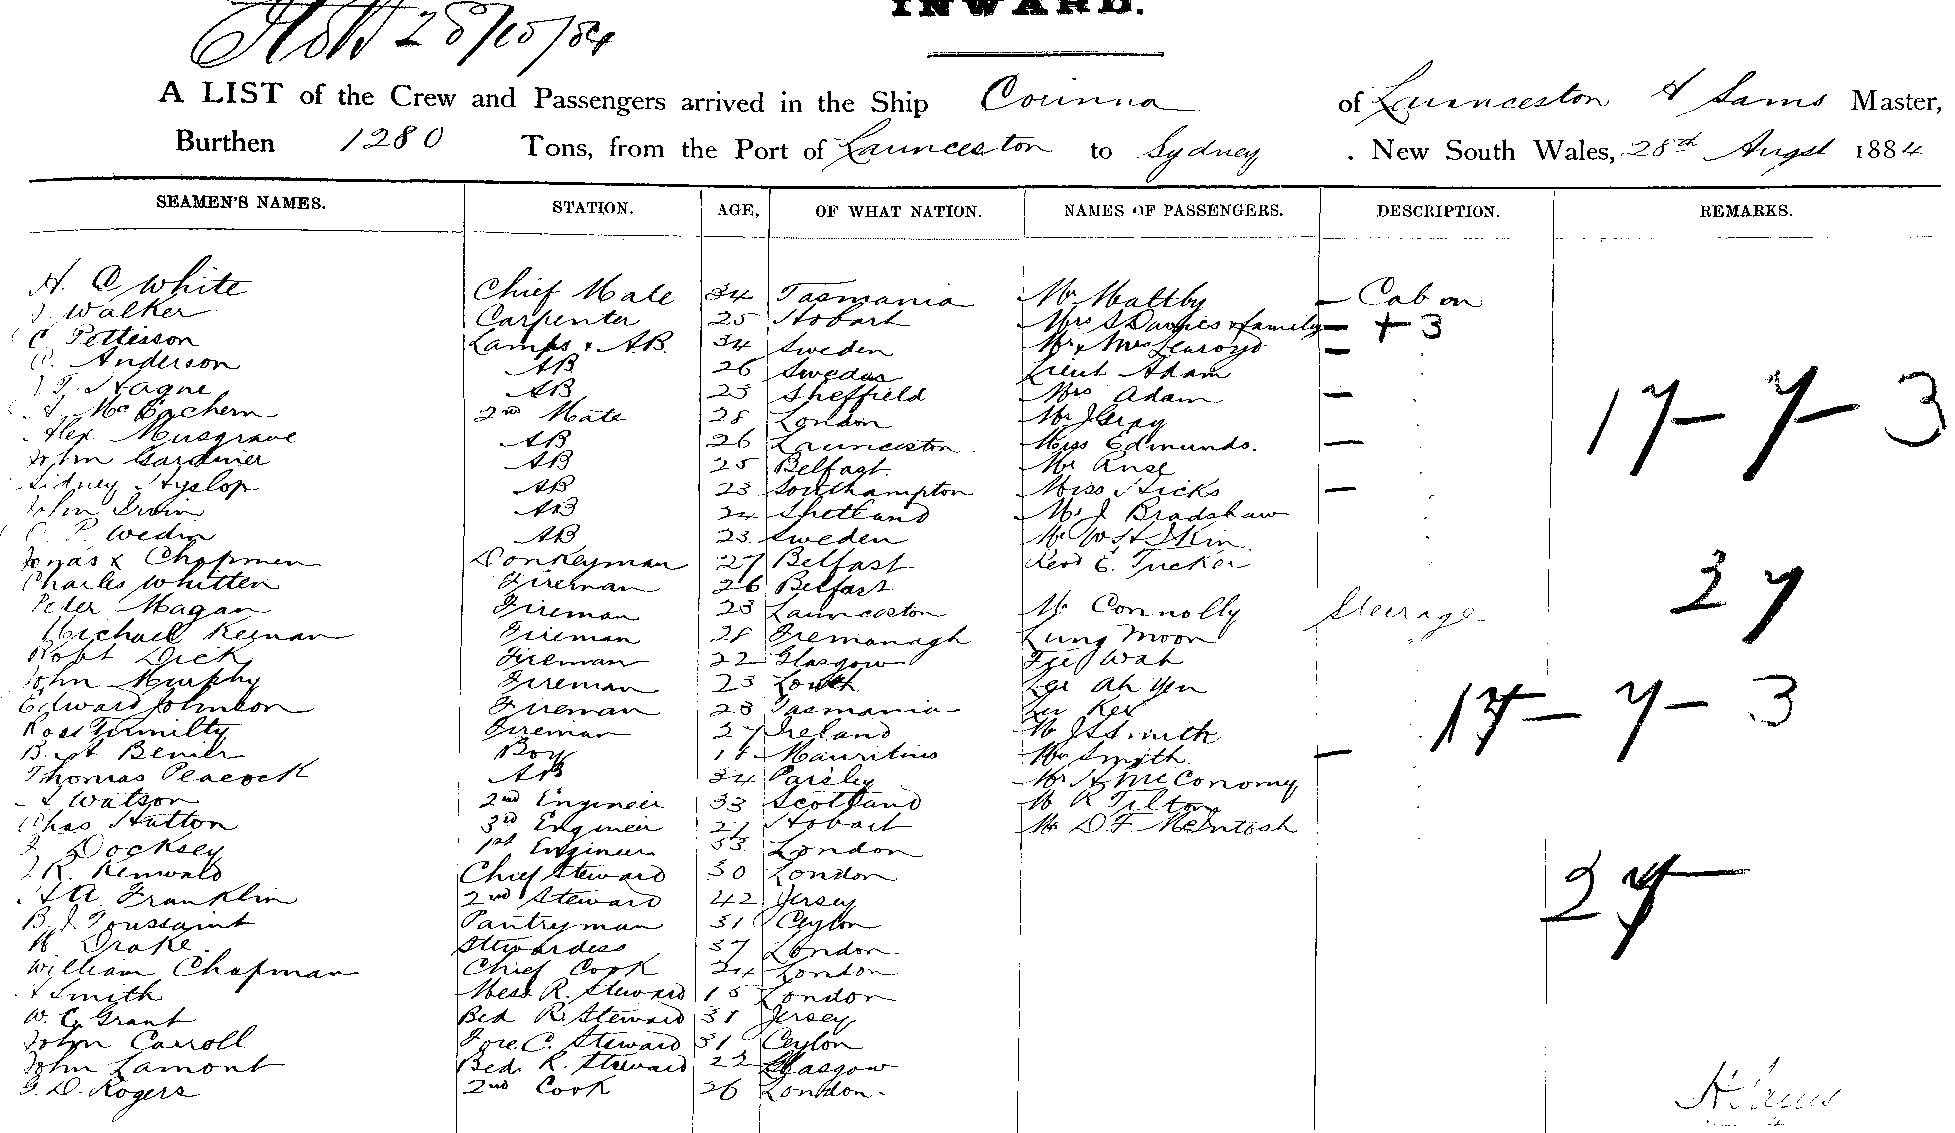 INWARD.
28/10/84
A LIST of the Crew and Passengers arrived in the Ship Corinna of Launceston H Sams Master,
Burthen 1280 Tons, from the Port of Launceston to Sydney . New South Wales, 28th Augst 1884
SEAMEN'S NAMES. STATION. AGE, OF WHAT NATION. NAMES OF PASSENGERS. DESCRIPTION. REMARKS.
H. C White Chief Mate 34 Tasmania Mr Maltby — Cabin
J. Walker Carpenter 25 Hobart Mrs S Davies & family — + 3
C Petterson Lamps & AB. 34 Sweden Mr & Mrs Learoyd —
C. Anderson AB 26 Sweden Lieut Adam
Hague AB 23 Sheffield Mrs Adam —
A. McEachern 2nd Mate 28 London Mr J Gray 17 — 7 — 3
Alex Musgrave AB 26 Launceston Miss Edmunds. —
John Gardiner AB 25 Belfast Mr
Sidney Hyslop AB 23 Southampton Miss Hicks —
John Irvin AB 24 Shetland Mr J Bradshaw
C. P. Wedin AB 23 Sweden Mr
Chapman Donkeyman 27 Belfast Revd E. Tucker
Charles Whitten Fireman 26 Belfast 27
Peter Magan Fireman 23 Launceston Mr Connolly Steerage
Michael Keenan Fireman 28 Fremanagh Lung Moon
Robt Dick Fireman 22 Glasgow Wah
John Murphy Fireman 23 Louth Lee Ah Yen
Edward Johnson Fireman 28 Tasmania 17 — 7 — 3
Ross Fireman 27 Ireland Mr J S Smith
Boy Mauritius Mrs Smith. —
Thomas Peacock AB 34 Paisley Mr H McConomy
Watson 2nd Engineer 33 Scotland Mr R Tilton
Chas Hutton 3rd Engineer 21 Hobart Mr D F McIntosh
Docksey 1st Engineer 33 London
J R. Renwald Chief Steward 30 London 27
Franklin 2nd Steward 42 Jersey
B. J. Toussaint Pantryman 31 Ceylon
Drake. Stewardess 37 London.
William Chapman Chief Cook 24 London
A Smith Mess R. Steward 15 London
W. C. Grant Bed R. Steward 31 Jersey
John Carroll Fore C. Steward 31 Ceylon
John Lamont Bed. R. Steward 22 Glasgow
G. D. Rogers 2nd Cook 26 London.
H Sams